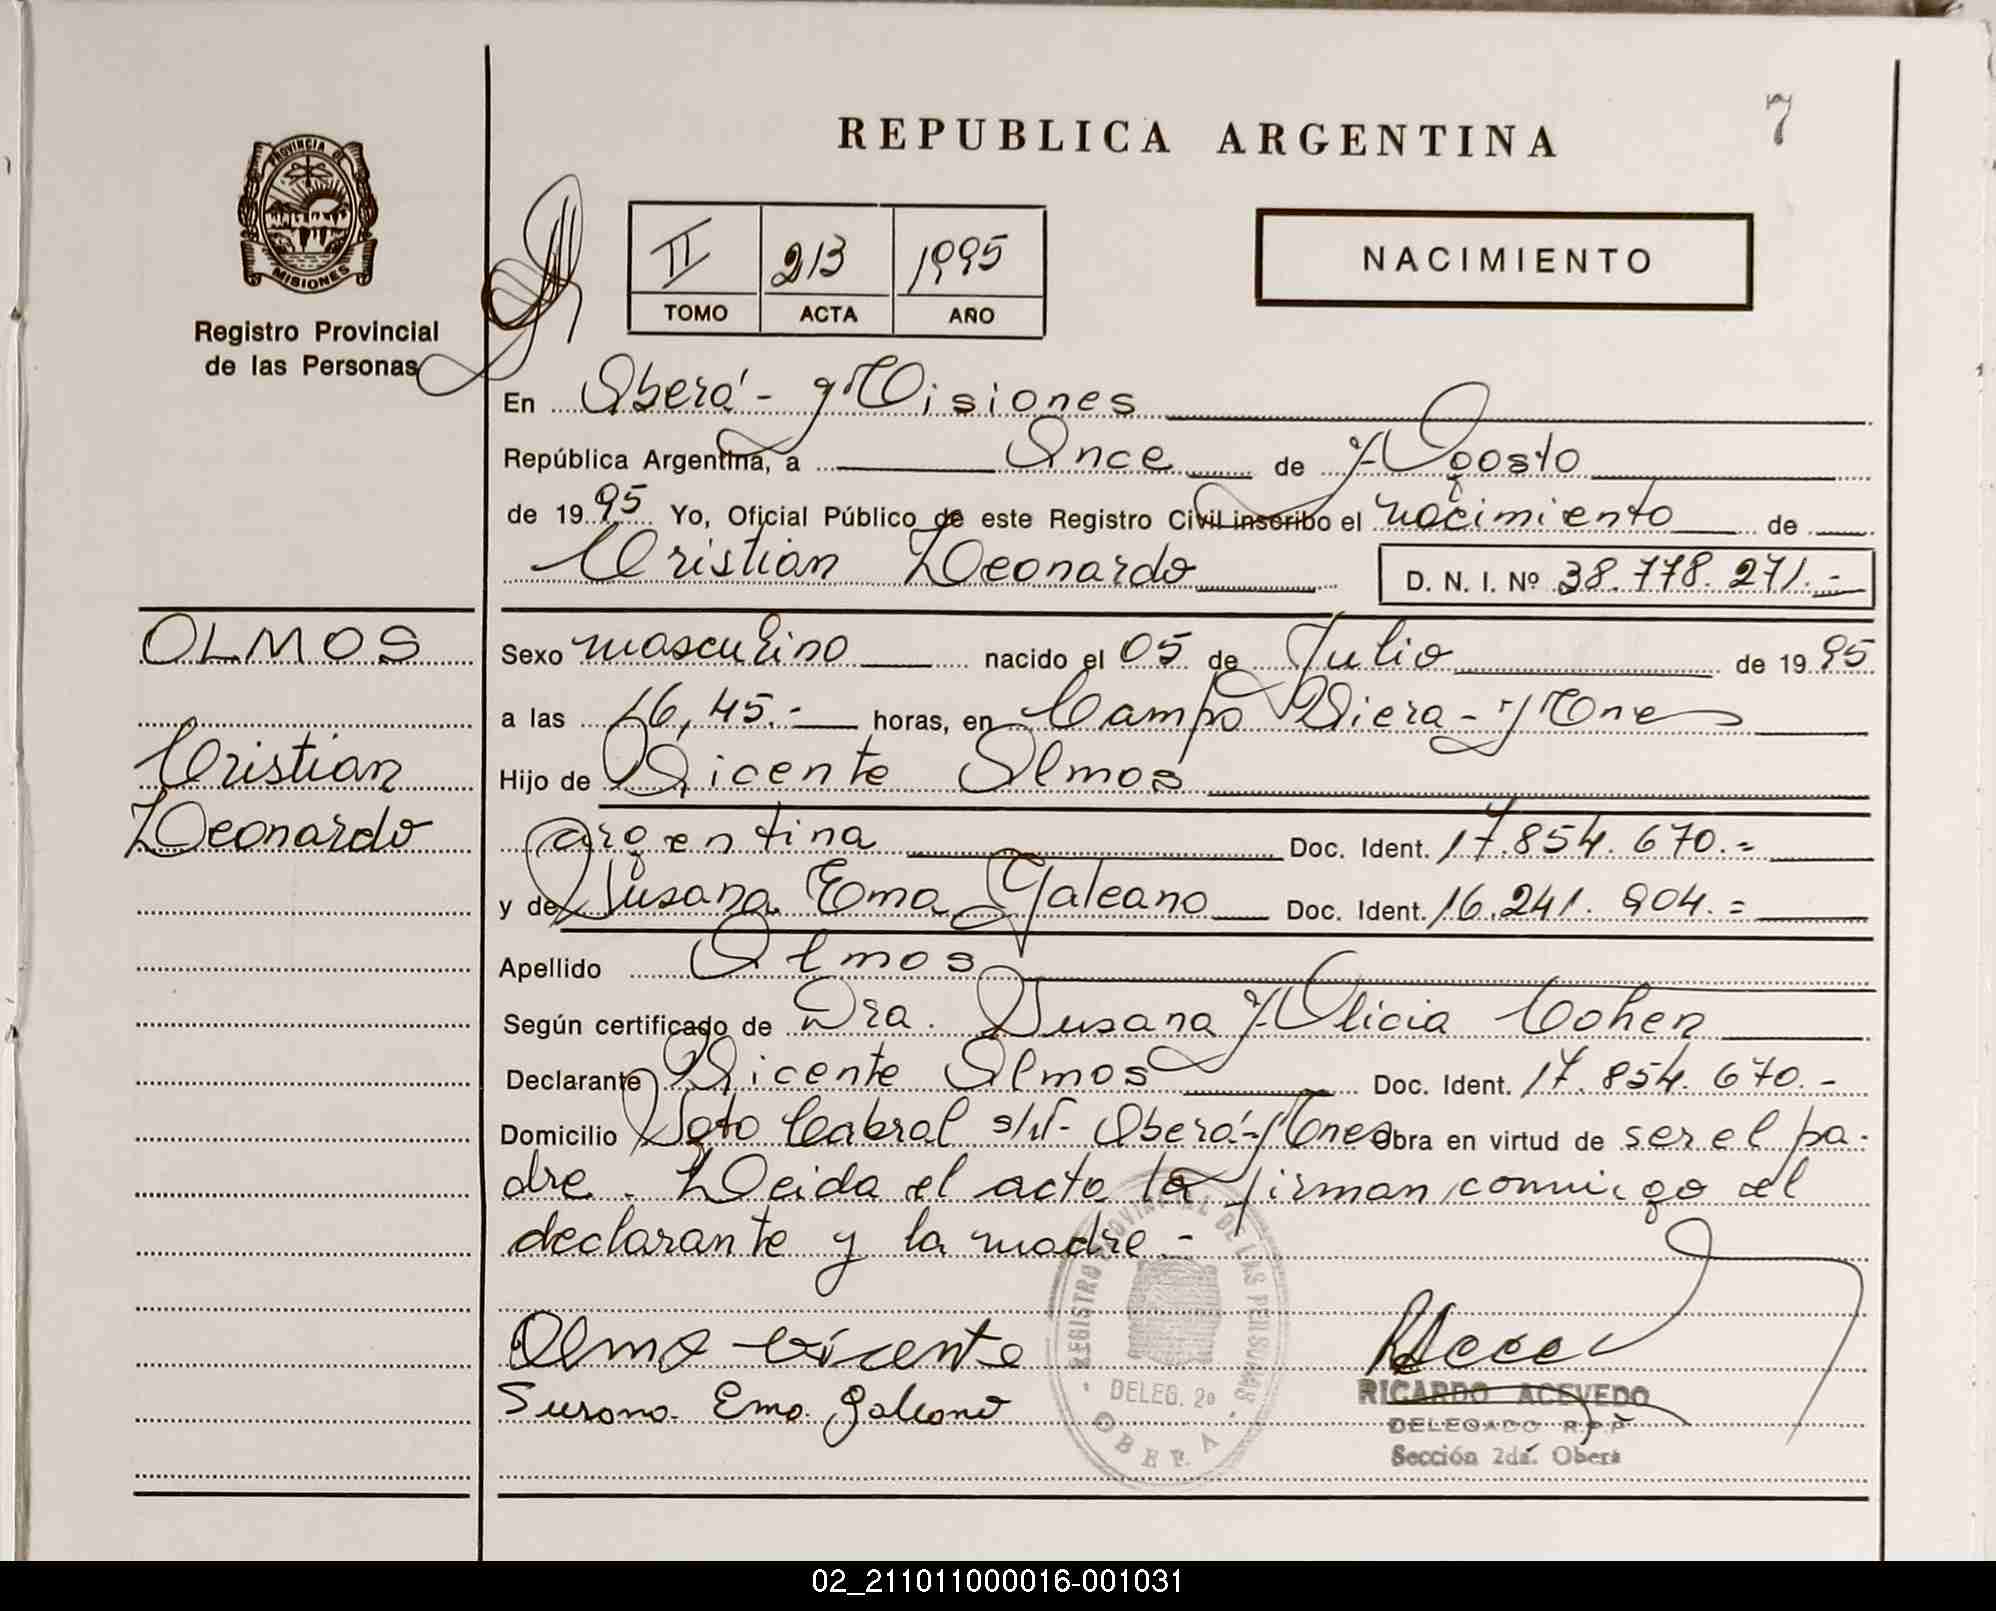 7
REPUBLICA ARGENTINA
PROVINCIA DE
MISIONES
Registro Provincial
de las Personas
II 213 1995
TOMO ACTA AÑO
NACIMIENTO
En Oberá - Misiones
República Argentina, a Once de Agosto
de 1995 Yo, Oficial Público de este Registro Civil inscribo el nacimiento de
Cristian Leonardo D. N. I. Nº 38.778.271.-
OLMOS
Cristian
Leonardo
Sexo masculino nacido el 05 de Julio de 1995
a las 16,45.- horas, en Campo Viera - Mnes
Hijo de Vicente Olmos
argentina Doc. Ident. 17.854.670.=
y de Susana Ema Galeano Doc. Ident. 16.241.904.=
Apellido Olmos
Según certificado de Dra. Susana Alicia Cohen
Declarante Vicente Olmos Doc. Ident. 17.854.670.-
Domicilio Sgto Cabral s/n - Oberá - Mnes Obra en virtud de ser el pa-
dre. Leida el acta la firman conmigo el
declarante y la madre.-
Olmo vicente
Susana Ema galeano
REGISTRO PROVINCIAL DE LAS PERSONAS
DELEG. 2º
OBERA
RICARDO ACEVEDO
DELEGADO R.P.P
Sección 2da. Oberá
02_211011000016-001031